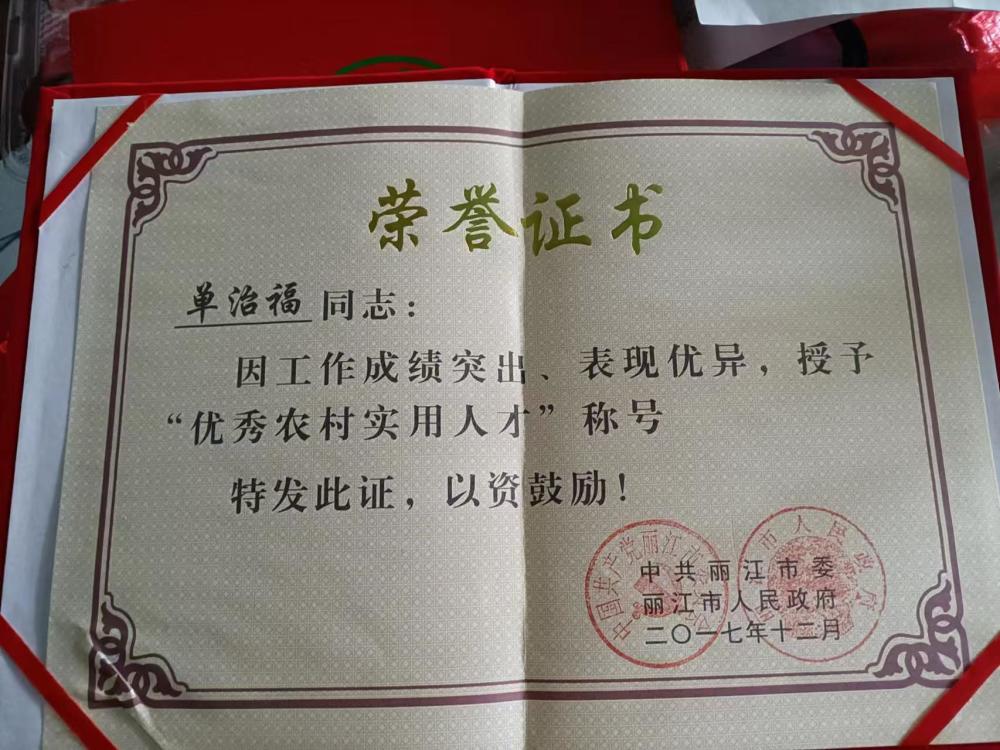 荣誉证书
单治福同志：
因工作成绩突出、表现优异，授予
“优秀农村实用人才”称号
特发此证，以资鼓励！
中共丽江市委
丽江市人民政府
二〇一七年十二月
中国共产党丽江市
市人民政府